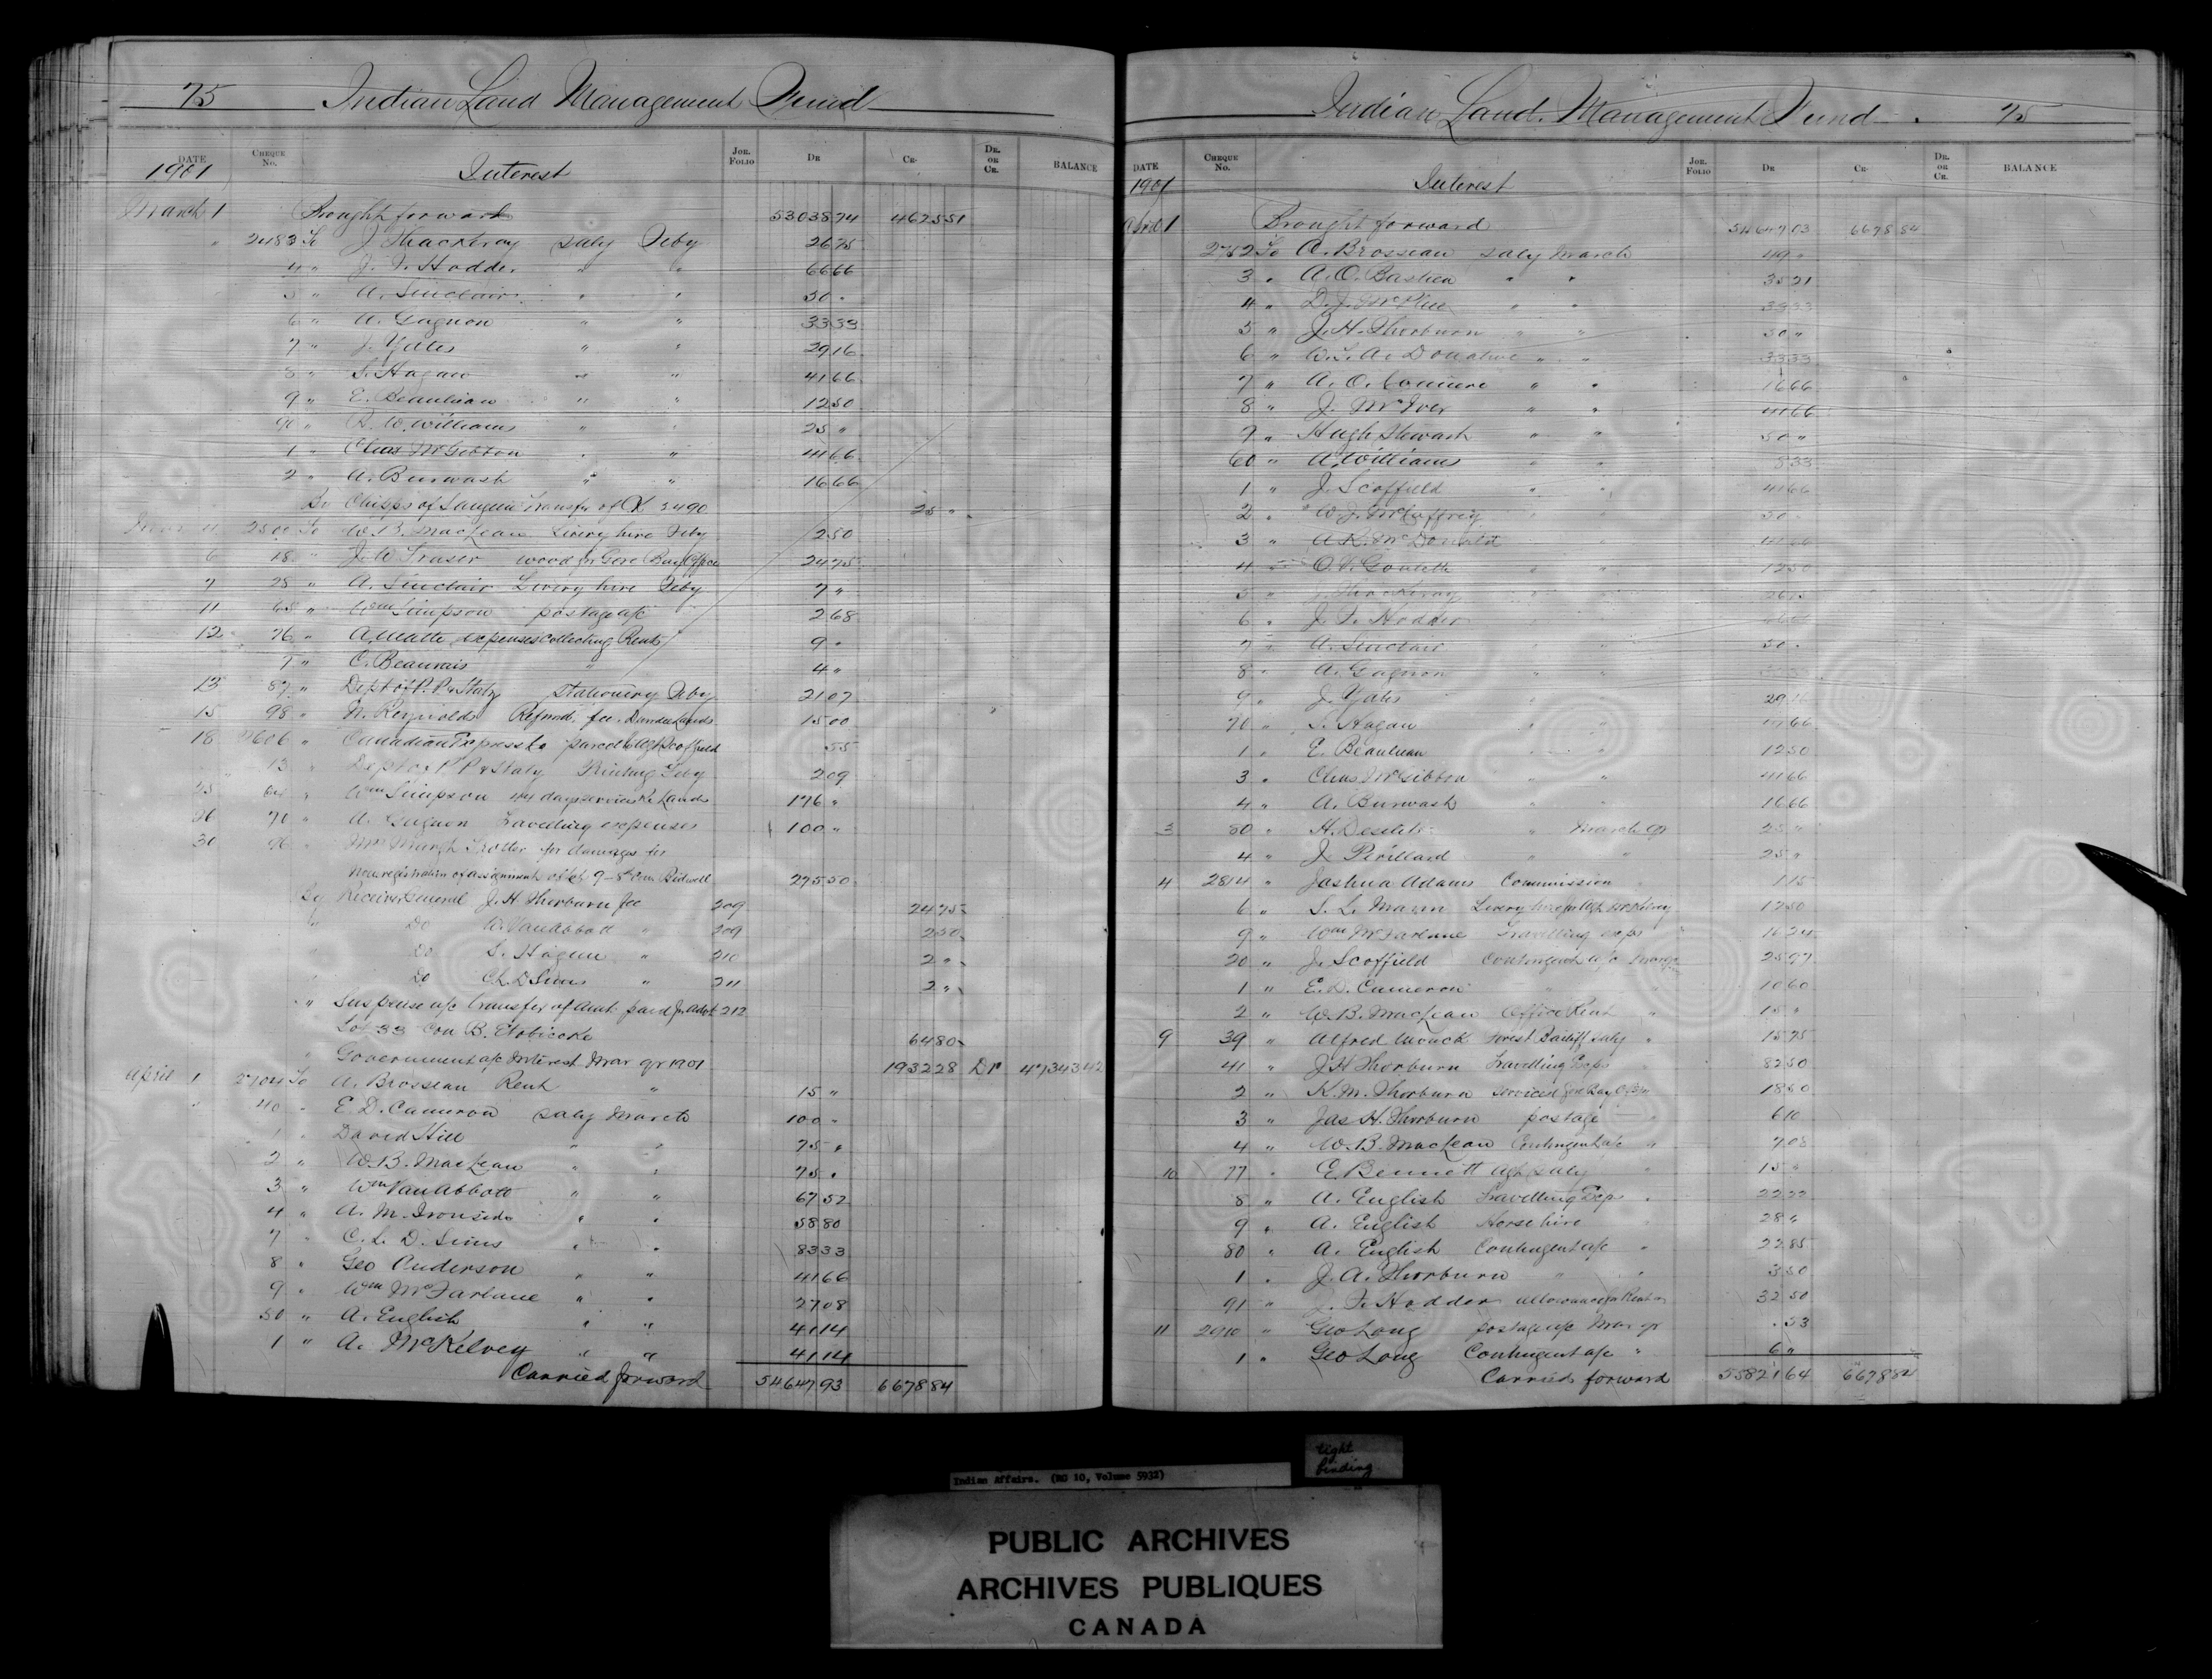 75 Indian Land Management Fund
DATE Cheque No. Interest Jor. Folio Dr Cr. Dr. or Cr. BALANCE
1901
March 1 Brought forward 53038 74 4625 51
" 2483 To J Thackeray Saly Feby 26 75
4 " J. F. Hodder " " 66 66
5 " A. Sinclair " " 50 "
6 " A. Gagnon " " 33 33
7 " J. Yates " " 29 16
8 " S. Hagan " " 41 66
9 " E. Beaulieau " " 12 50
90 " R. W. Williams " " 25 "
1 " Chas McGibbon " " 41 66
2 " A. Burwash " " 16 66
By Chipps of Saugeen Transfer of Ck 2490 25 "
2500 To W. B. MacLean Livery hire Feby 2 50
6 18 " J. W. Fraser wood for Gore Bay Office 24 75
7 28 " A. Sinclair Livery hire Feby 7 "
11 65 " Wm Simpson postage a/c 2 68
12 76 " expenses collecting Rents 9 "
7 " C. Beauvais " 4 "
13 87 " Dept of P. P & Staty Stationery Feby 21 07
15 98 " N. Reynolds Refund fee Dundee Lands 15 00
18 2606 " Canadian Express Co parcel to Agt Scoffield 55
13 " Dept of P. P & Staty Printing Feby 2 09
25 64 " Wm Simpson 44 days services Re Lands 176 "
26 70 " A. Gagnon Travelling expenses 100 "
30 96 " Mrs Margt Trotter for damages for
Non registration of assignment of Lot 9 - 8th Con Bidwell 275 50
By Receiver General J. H Thorburn fee 209 24 75
" Do W. Van Abbott " 209 2 50
" Do S. Hagan " 210 2 "
" Do Ch. D Sims " 211 2 "
" Suspense a/c transfer of amt paid 212
Lot 33 Con B. Etobicoke 64 80
" Government a/c Interest Mar qr 1901 1932 28 Dr 47343 42
April 1 2704 To A. Brosseau Rent " 15 "
" 40 " E. D. Cameron Saly March 100 "
1 " David Hill " " 75 "
2 " W. B. MacLean " " 75 "
3 " Wm Van Abbott " " 67 52
4 " A. M. Ironside " " 58 80
7 " C. L. D. Sims " " 83 33
8 " Geo Anderson " " 41 66
9 " Wm McFarlane " " 27 08
50 " A. English " " 41 14
1 " A. McKelvey " " 41 14
Carried forward 54647 93 6678 84
Indian Land Management Fund 75
DATE Cheque No. Interest Jor. Folio Dr Cr. Dr. or Cr. BALANCE
1901
April 1 Brought forward 54647 93 6678 84
2752 To A. Brosseau Saly March 49 "
3 " A. O. Bastien " " 35 21
4 " D. J. McPhee " " 33 33
5 " J. H. Thorburn " " 50 "
6 " W. S. A. Donahue " " 33 33
7 " A. O. " " 16 66
8 " J. McIver " " 41 66
9 " Hugh Stewart " " 50 "
60 " A. Williams " " 8 33
1 " J. Scoffield " " 41 66
2 " W. J. McCaffrey " " 50 "
3 " A. R. McDonald " " 41 66
4 " O. V. Goulette " " 12 50
5 " J. Thackeray " " 26 75
6 " J. F. Hodder " " 66 66
7 " A. Sinclair " " 50 "
8 " A. Gagnon " " 33 33
9 " J. Yates " " 29 16
70 " S. Hagan " " 41 66
1 " E. Beaulieau " " 12 50
3 " Chas McGibbon " " 41 66
4 " A. Burwash " " 16 66
3 80 " H. Desilets " March qr 25 "
4 " J. Perillard " " 25 "
4 2814 " Joshua Adams Commission " 1 15
6 " S. L. Mann Livery hire for Agt McKelvey 12 50
9 " Wm McFarlane Travelling exps " 16 24
20 " J. Scoffield Contingent a/c 25 97
1 " E. D. Cameron " " 10 60
2 " W. B. MacLean Office Rent " 15 "
9 39 " Alfred Monck Forest Bailiff Saly " 15 75
41 " J H Thorburn Travelling Exps " 82 50
2 " K. M. Thorburn services Gore Bay Office 18 50
3 " Jas H. Thorburn postage " 6 10
4 " W. B. MacLean Contingent a/c " 7 08
10 77 " E Bennett Agt Saly " 15 "
8 " A. English Travelling Exps " 22 22
9 " A. English Horse hire " 28 "
80 " A. English Contingent a/c " 22 85
1 " J. A. Thorburn " " 3 50
91 " J. F. Hodder allowance for Rent 32 50
11 2910 " Geo Long postage a/c Mar qr 53
1 " Geo Long Contingent a/c " 6 "
Carried forward 55821 64 6678 84
tight
binding
Indian Affairs. (RG 10, Volume 5932)
PUBLIC ARCHIVES
ARCHIVES PUBLIQUES
CANADA